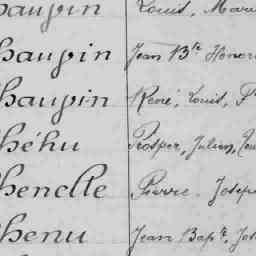 haupin Louis, Mari
haupin Jean Bte Honor
haupin René, Louis, F
héhu Prosper, Julien, Lou
henelle Pierre. Josep
henu Jean Bapt. Jos